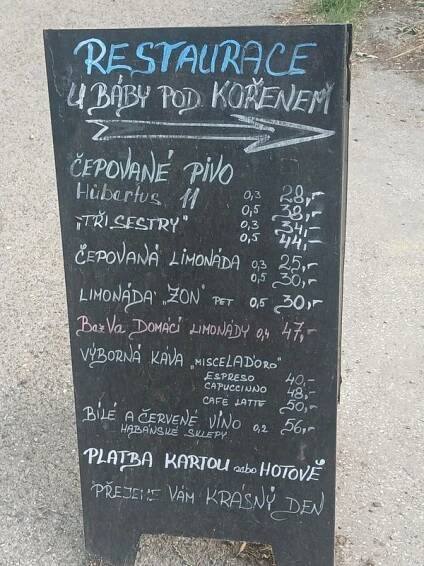 RESTAURACE
U BÁBY POD KOŘENEM
ČEPOVANÉ PIVO
Hubertus 11 0,3 28,-
0,5 38,-
„TŘI SESTRY" 0,3 34,-
0,5 44,-
ČEPOVANÁ LIMONÁDA 0,3 25,-
0,5 30,-
LIMONÁDA „ZON" PET 0,5 30,-
BazVa DOMÁCÍ LIMONÁDY 0,4 47,-
VÝBORNÁ KÁVA „MISCELAD'ORO"
ESPRESO 40,-
CAPUCCINNO 48,-
CAFÉ LATTE 50,-
BÍLÉ A ČERVENÉ VÍNO 0,2 56,-
HABÁNSKÉ SKLEPY
PLATBA KARTOU nebo HOTOVĚ
PŘEJEME VÁM KRÁSNÝ DEN